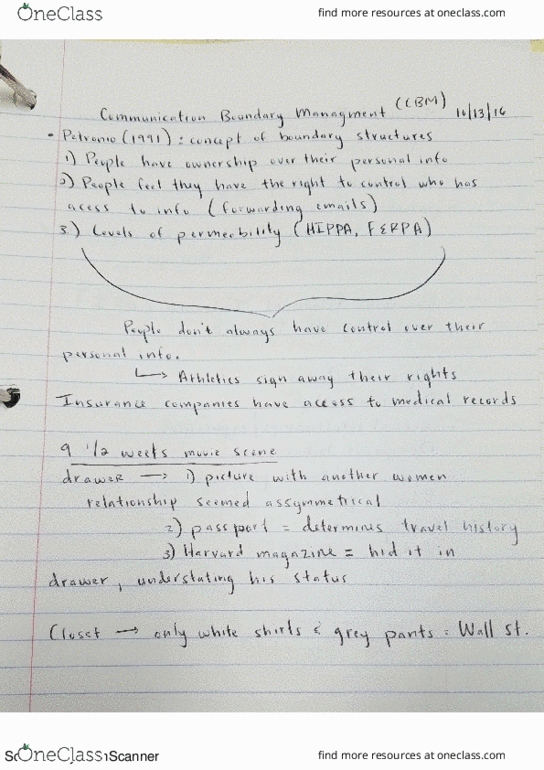 OneClass
find more resources at oneclass.com
Communication Boundary Managment (CBM) 10/13/16
• Petronio (1991) : concept of boundary structures
1) People have ownership over their personal info
2) People feel they have the right to control who has
acess to info (forwarding emails)
3.) Levels of permeability (HIPPA, FERPA)
People don't always have control over their
personal info.
↳ Athletics sign away their rights
Insurance companies have access to medical records
9 1/2 weeks movie scene
drawer → 1) picture with another women
relationship seemed assymmetrical
2) passport = determines travel history
3) Harvard magazine = hid it in
drawer, understating his status
Closet → only white shirts & grey pants : Wall St.
OneClass Scanner
find more resources at oneclass.com